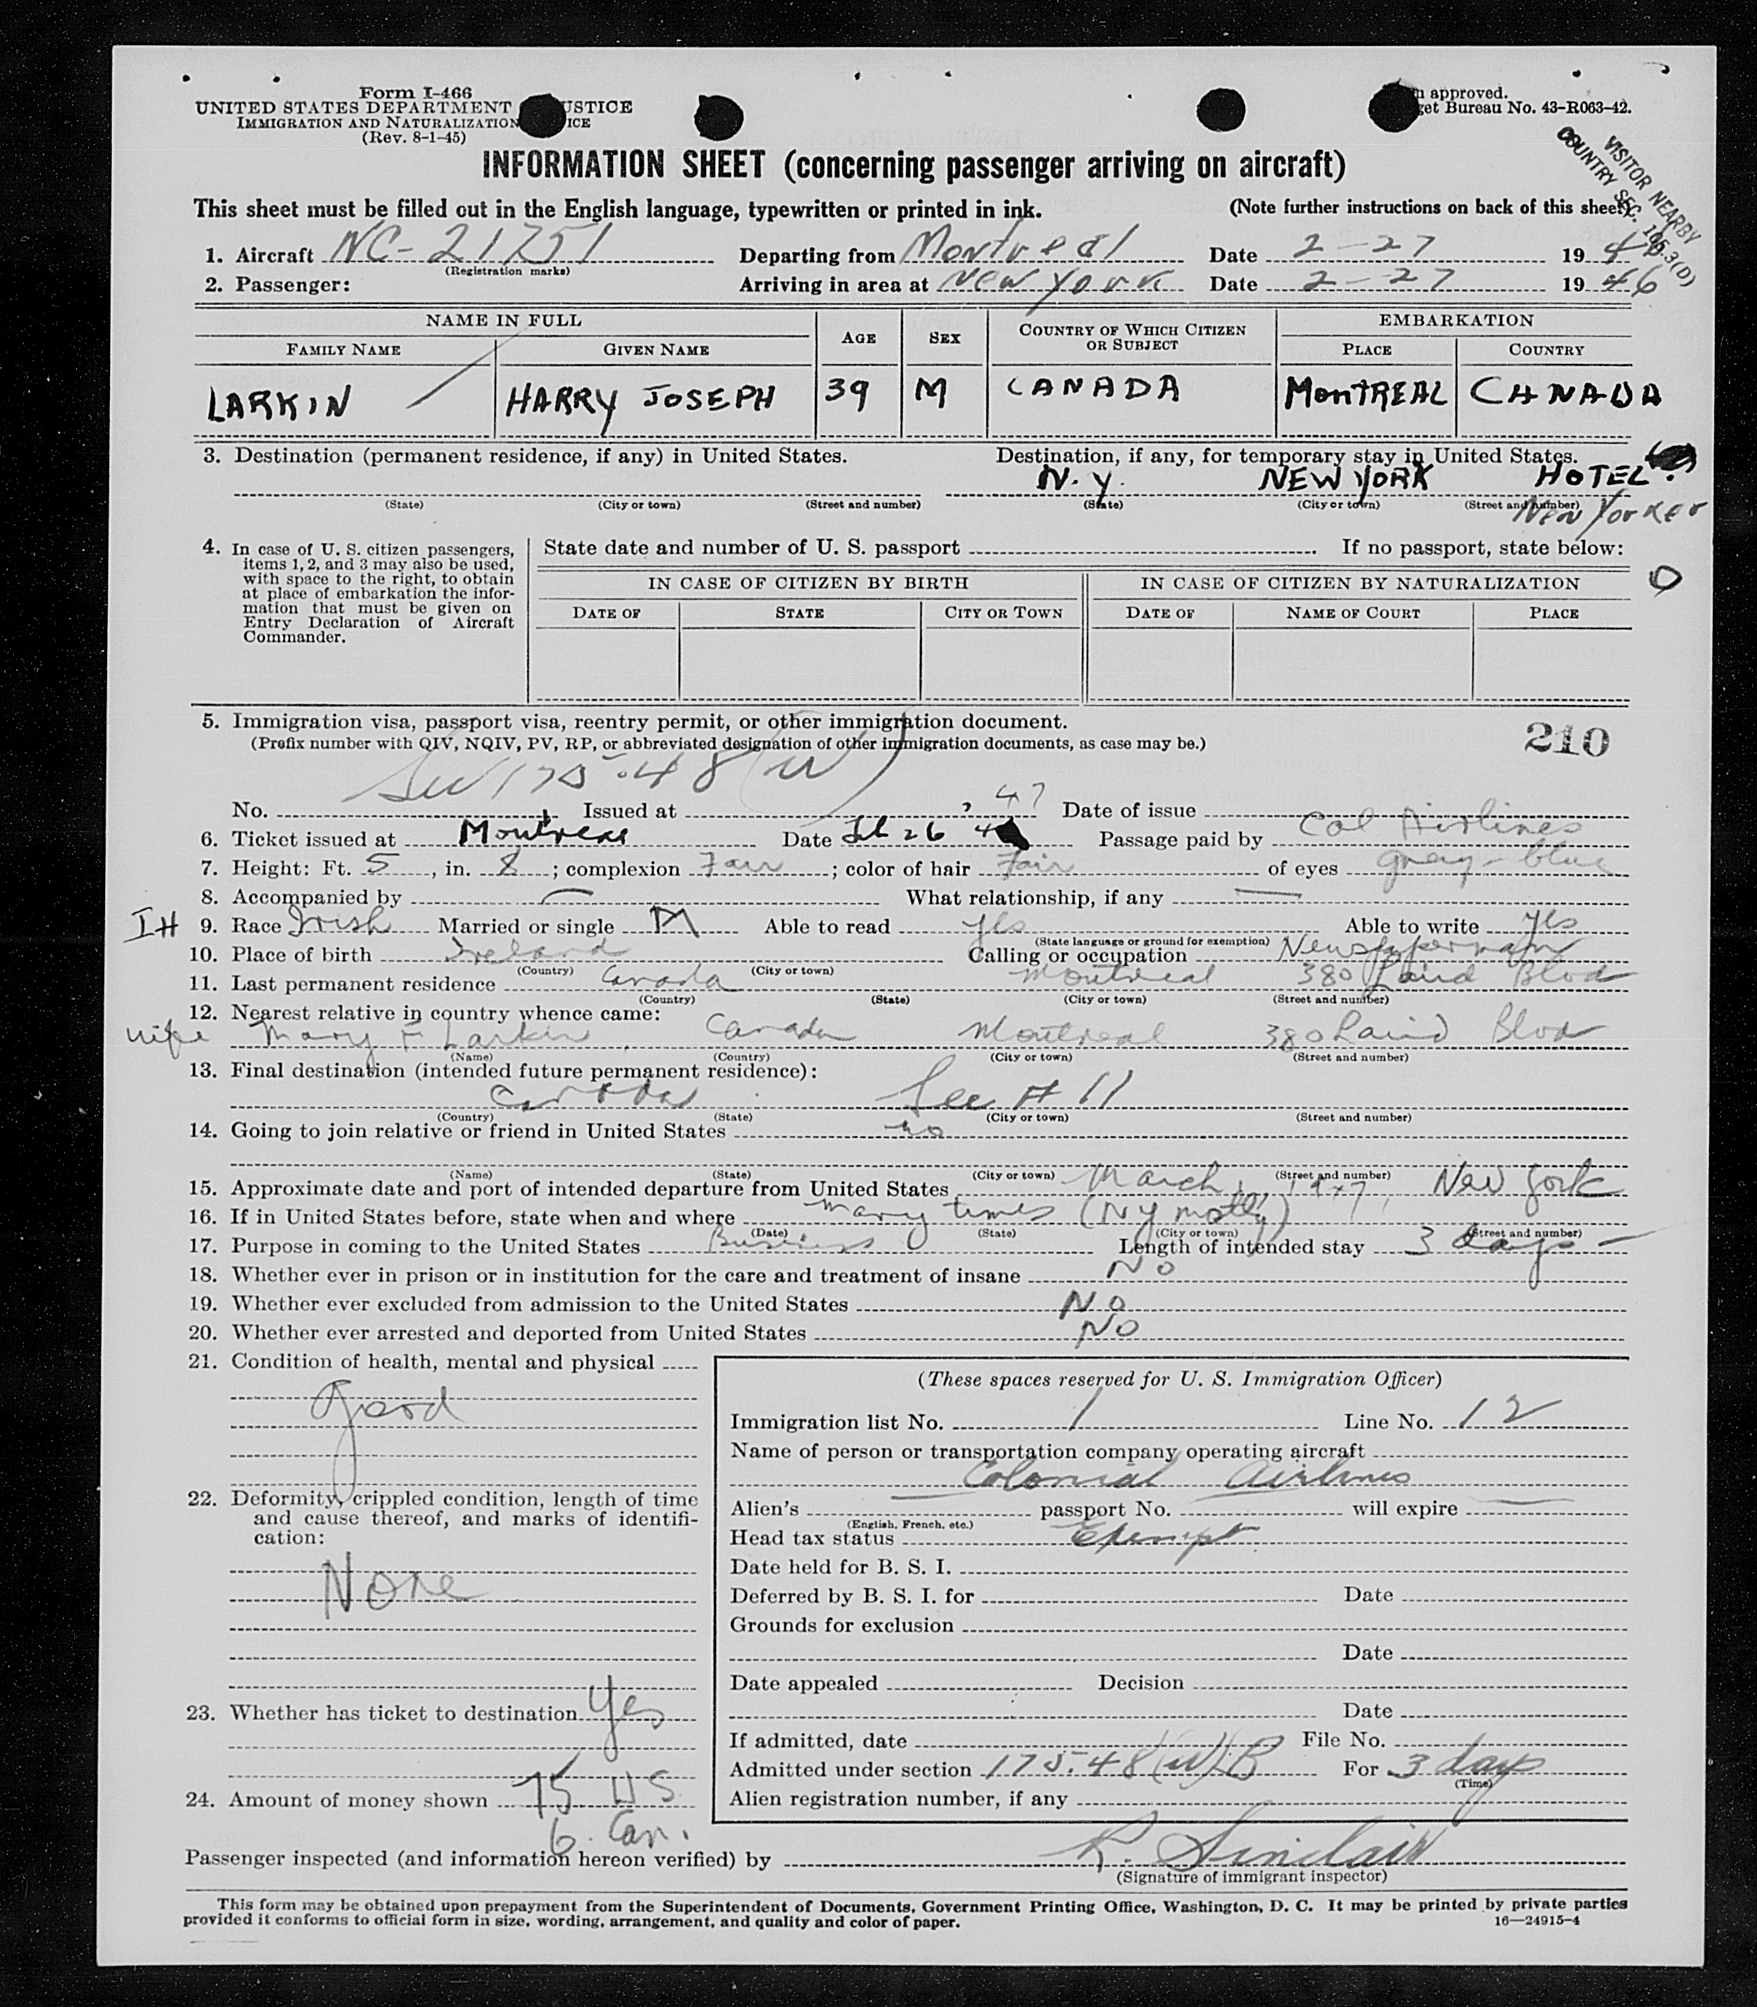 Form I-466
UNITED STATES DEPARTMENT USTICE
IMMIGRATION AND NATURALIZATION ICE
(Rev. 8-1-45)
approved.
get Bureau No. 43-R063-42.
VISITOR NEARBY
COUNTRY SEC. 165.3(D)
INFORMATION SHEET (concerning passenger arriving on aircraft)
This sheet must be filled out in the English language, typewritten or printed in ink. (Note further instructions on back of this sheet)
1. Aircraft NC-21751 Departing from Montreal Date 2-27 19
(Registration marks)
2. Passenger: Arriving in area at New York Date 2-27 1946
NAME IN FULL AGE SEX COUNTRY OF WHICH CITIZEN OR SUBJECT EMBARKATION
FAMILY NAME GIVEN NAME PLACE COUNTRY
LARKIN HARRY JOSEPH 39 M CANADA MONTREAL CANADA
3. Destination (permanent residence, if any) in United States. Destination, if any, for temporary stay in United States.
N.Y. NEW YORK HOTEL
(State) (City or town) (Street and number) (State) (City or town) (Street and number)
New Yorker
4. In case of U. S. citizen passengers, items 1, 2, and 3 may also be used, with space to the right, to obtain at place of embarkation the information that must be given on Entry Declaration of Aircraft Commander.
State date and number of U. S. passport If no passport, state below:
IN CASE OF CITIZEN BY BIRTH IN CASE OF CITIZEN BY NATURALIZATION
DATE OF STATE CITY OR TOWN DATE OF NAME OF COURT PLACE
5. Immigration visa, passport visa, reentry permit, or other immigration document.
(Prefix number with QIV, NQIV, PV, RP, or abbreviated designation of other immigration documents, as case may be.)
210
175.48(W)
No. Issued at Date of issue
47
6. Ticket issued at Montreal Date Feb 26 Passage paid by Col Airlines
7. Height: Ft. 5, in. 8; complexion Fair; color of hair Fair of eyes grey-blue
8. Accompanied by — What relationship, if any —
IH 9. Race Irish Married or single M Able to read yes Able to write yes
(State language or ground for exemption)
10. Place of birth Ireland Calling or occupation Newspaperman
(Country) (City or town)
11. Last permanent residence Canada Montreal 380 Laird Blvd
(Country) (State) (City or town) (Street and number)
12. Nearest relative in country whence came:
wife Mary F Larkin, Canada Montreal 380 Laird Blvd
(Name) (Country) (City or town) (Street and number)
13. Final destination (intended future permanent residence):
Canada See # 11
(Country) (State) (City or town) (Street and number)
14. Going to join relative or friend in United States no
(Name) (State) (City or town) (Street and number)
15. Approximate date and port of intended departure from United States March 1, 1947, New York
16. If in United States before, state when and where many times (NY mostly)
(Date) (State) (City or town) (Street and number)
17. Purpose in coming to the United States Business Length of intended stay 3 days
18. Whether ever in prison or in institution for the care and treatment of insane No
19. Whether ever excluded from admission to the United States No
20. Whether ever arrested and deported from United States No
21. Condition of health, mental and physical
Good
22. Deformity, crippled condition, length of time and cause thereof, and marks of identification:
None
23. Whether has ticket to destination Yes
24. Amount of money shown 75 US
6. Can.
(These spaces reserved for U. S. Immigration Officer)
Immigration list No. 1 Line No. 12
Name of person or transportation company operating aircraft
Colonial Airlines
Alien's — passport No. — will expire —
(English, French, etc.)
Head tax status Exempt
Date held for B. S. I.
Deferred by B. S. I. for Date
Grounds for exclusion
Date
Date appealed Decision
Date
If admitted, date File No.
Admitted under section 175.48(W)B For 3 days
(Time)
Alien registration number, if any
Passenger inspected (and information hereon verified) by R. Sinclair
(Signature of immigrant inspector)
This form may be obtained upon prepayment from the Superintendent of Documents, Government Printing Office, Washington, D. C. It may be printed by private parties
provided it conforms to official form in size, wording, arrangement, and quality and color of paper. 16—24915-4